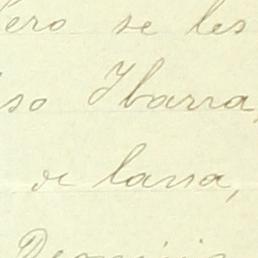 ero se les
so Ibarra,
de larra,